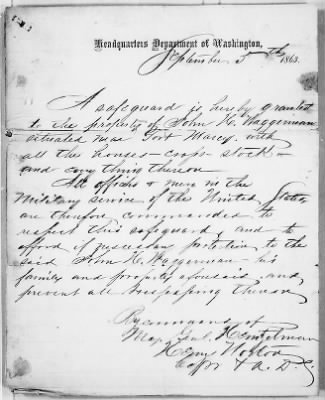 Headquarters Department of Washington,
September 5th 1863.
A safeguard is hereby granted
to the property of John H. Waggerman
situated near Fort Marcy with
all the houses crops stock
and every thing thereon
All officers & men in the
Military service of the United States
are therefore commanded to
respect this safeguard, and to
afford if necessary protection to the
said John H. Waggerman his
family and property aforesaid and
prevent all trespassing thereon
By command of
Maj. Genl. Heintzelman
Henry Norton
Capt & A. D. C.